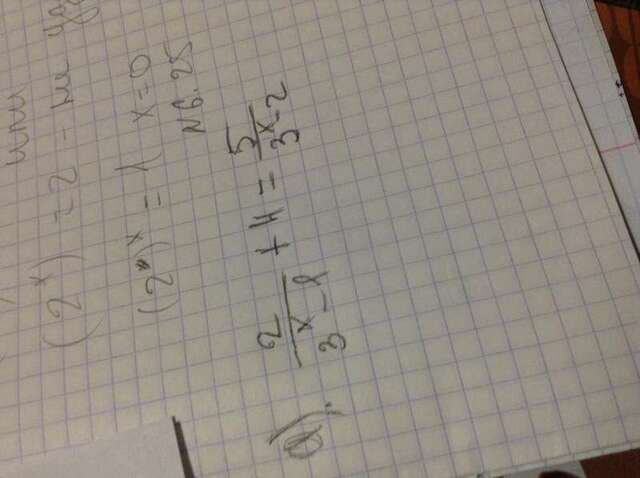 или
(2ˣ) = 2 - не
(2ˣ)ˣ = 1 x = 0
N6.25
а). 2/(3ˣ - 1) + 4 = 5/(3ˣ - 2)